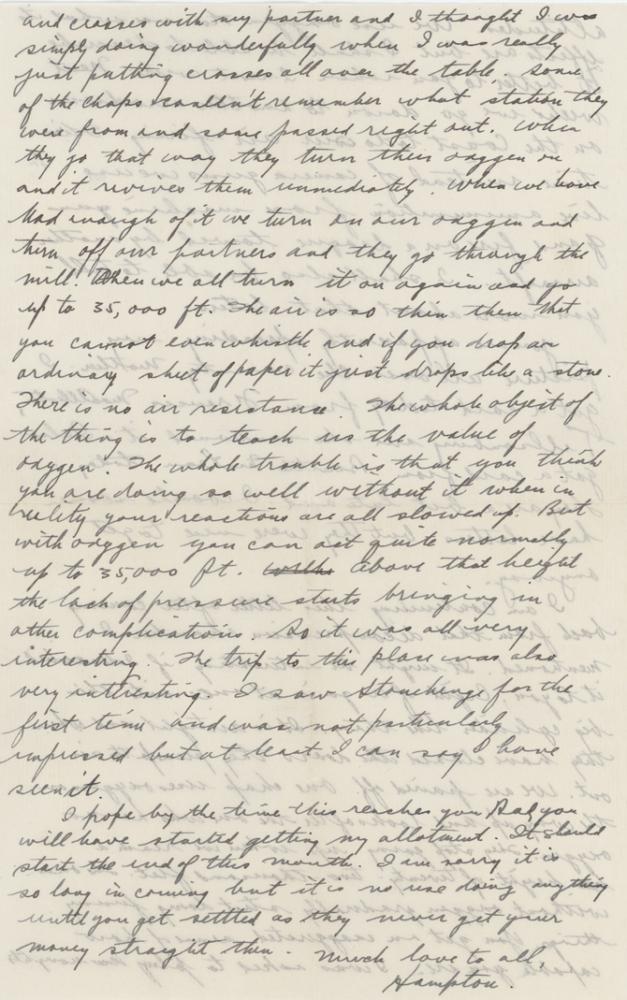 and crosses with my partner and I thought I was
simply doing wonderfully when I was really
just putting crosses all over the table. Some
of the chaps couldn't remember what station they
were from and some passed right out. When
they go that way they turn their oxygen on
and it revives them immediately. When we have
had enough of it we turn on our oxygen and
turn off our partners and they go through the
mill. Then we all turn it on again and go
up to 35,000 ft. The air is so thin then that
you cannot even whistle and if you drop an
ordinary sheet of paper it just drops like a stone.
There is no air resistance. The whole object of
the thing is to teach us the value of
oxygen. The whole trouble is that you think
you are doing so well without it when in
reality your reactions are all slowed up. But
with oxygen you can act quite normally
up to 35,000 ft. above that height
the lack of pressure starts bringing in
other complications. So it was all very
interesting. The trip to this place was also
very interesting. I saw Stonehenge for the
first time and was not particularly
impressed but at least I can say I have
seen it.
I hope by the time this reaches you that you
will have started getting my allotment. It should
start the end of this month. I am sorry it is
so long in coming but it is no use doing anything
until you get settled as they never get your
money straight then. Much love to all,
Hampton.